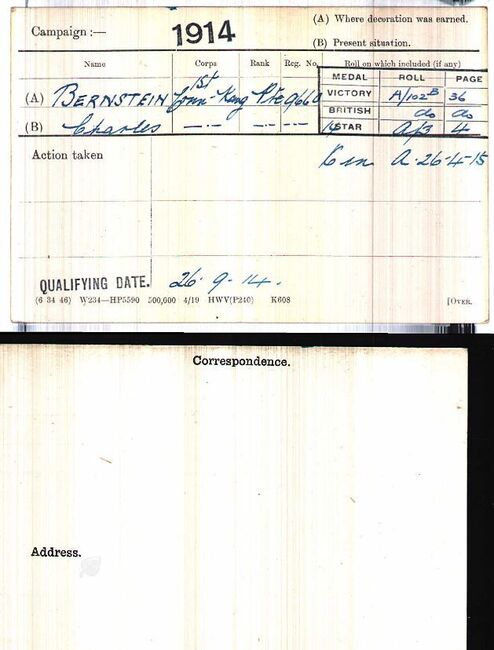 Campaign :— 1914
(A) Where decoration was earned.
(B) Present situation.
Name Corps Rank Reg. No. Roll on which included (if any)
MEDAL ROLL PAGE
VICTORY A/102B 36
BRITISH do do
STAR A/3 4
(A) BERNSTEIN 1st Conn. Rang Pte 9660
(B) Charles —.— —.— —.—
Action taken K in A. 26-4-15
QUALIFYING DATE. 26. 9. 14.
(6 34 46) W234—HP5590 500,000 4/19 HWV(P240) K608 [OVER.
Correspondence.
Address.